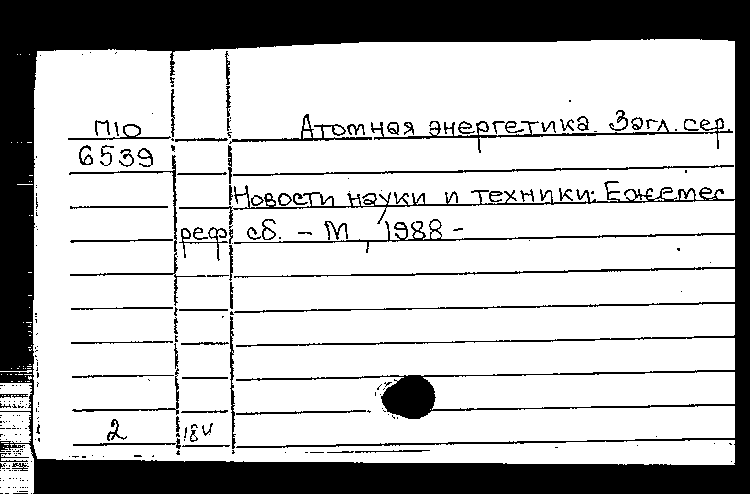 П10 Атомная энергетика. Загл. сер.
6539
Новости науки и техники: Ежемес
реф сб. - М, 1988 -
2 184